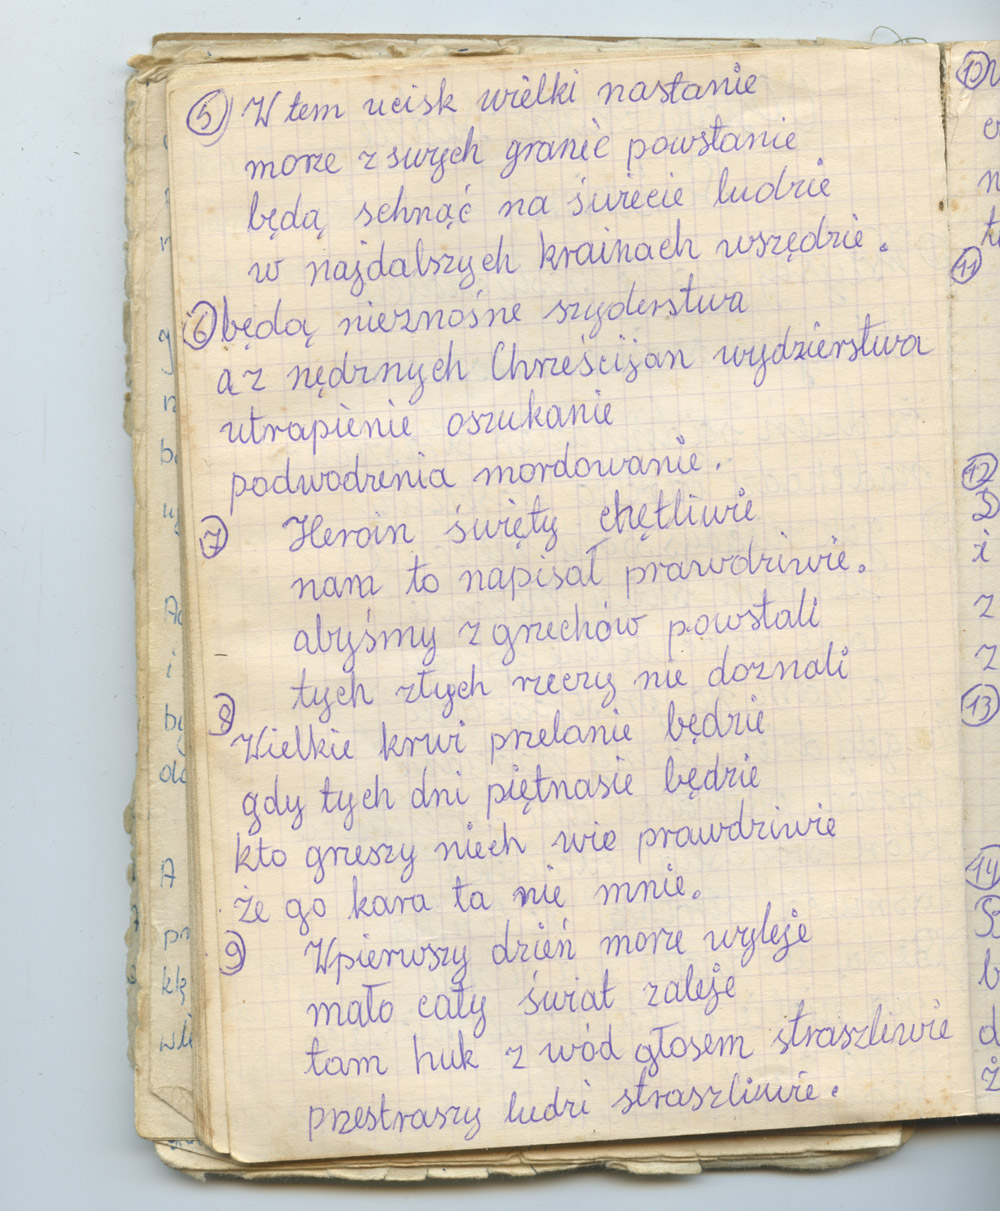 5 W tem ucisk wielki nastanie
morze z swych granić powstanie
będą schnąć na świecie ludzie
w najdalszych krainach wszędzie.
6 będą nieznośne szyderstwa
a z nędznych Chrześcijan wydzierstwa
utrapienie oszukanie
podwodzenia mordowanie.
7 Heroin święty chętliwie
nam to napisał prawdziwie.
abyśmy z grzechów powstali
tych złych rzeczy nie doznali
8
Wielkie krwi przelanie będzie
gdy tych dni piętnasie będzie
kto grzeszy niech wie prawdziwie
że go kara ta nie mnie.
9 Wpierwszy dzień morze wyleje
mało cały świat zaleje
tam huk z wód głosem straszliwie
przestraszy ludzi straszliwie.
10
11
12
i
z
z
13
14